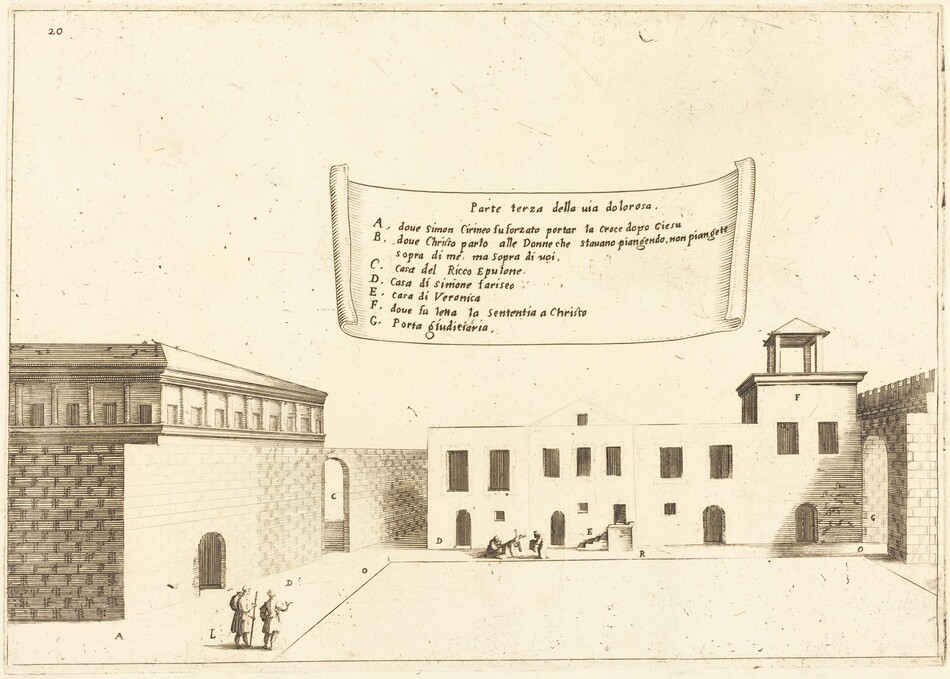 20
Parte terza della uia dolorosa.
A. doue Simon Cirineo fu forzato portar la Croce dopo Giesù
B. doue Christo parlo alle Donne che stauano piangendo, non piangete
sopra di me, ma sopra di uoi.
C. Casa del Ricco Epulone.
D. Casa di Simone fariseo
E. casa di Veronica
F. doue fu letta la Sententia a Christo
G. Porta giudiciaria.
F
C
G
D
E
R
O
O
D
A
L